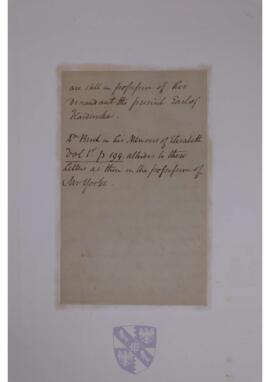 are still in possession of his
descendant the present Earl of
Hardwicke.
Dr Birch in his Memoirs of Elizabeth
Vol 1st p 199. alludes to these
letters as then in the possession of
Mr Yorke.